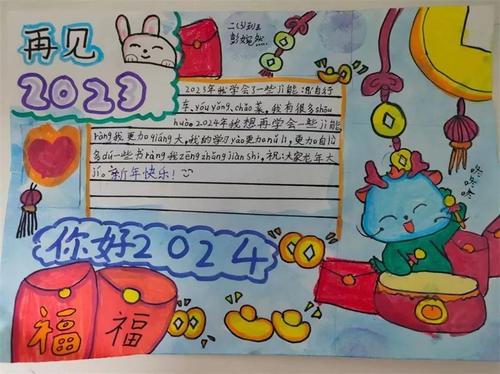 再见
2023
二(3)班
彭婉然
2023年我学会了一些jì能,骑自行
车、yóu yǒng、chǎo菜,我有很多shōu
huò。2024年我想再学会一些jì能
ràng我更力qiáng大,我的学习yào更力nǔ lì,更力
多dú一些书ràng我zēng zhǎng jiàn shi,祝大家龙年大
jí。新年快乐!
你好2024
福
福
咚咚
咚